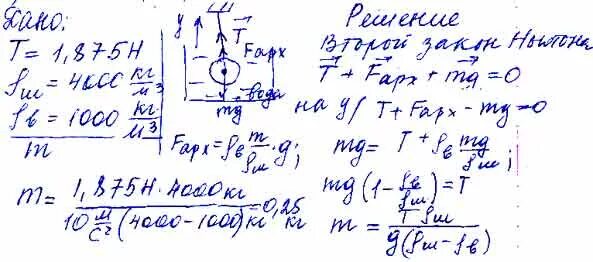 Дано:
T = 1,875Н
ρш = 4000 кг/м³
ρв = 1000 кг/м³
m
y
T
Fарх
вода
mg
Решение
Второй закон Ньютона
T + Fарх + mg = 0
на y/ T + Fарх - mg = 0
Fарх = ρв m/ρш · g;
mg = T + ρв mg/ρш;
mg(1 - ρв/ρш) = T
m = Tρш / g(ρш - ρв)
m = 1,875Н · 4000кг / 10 м/с² (4000 - 1000)кг = 0,25 кг